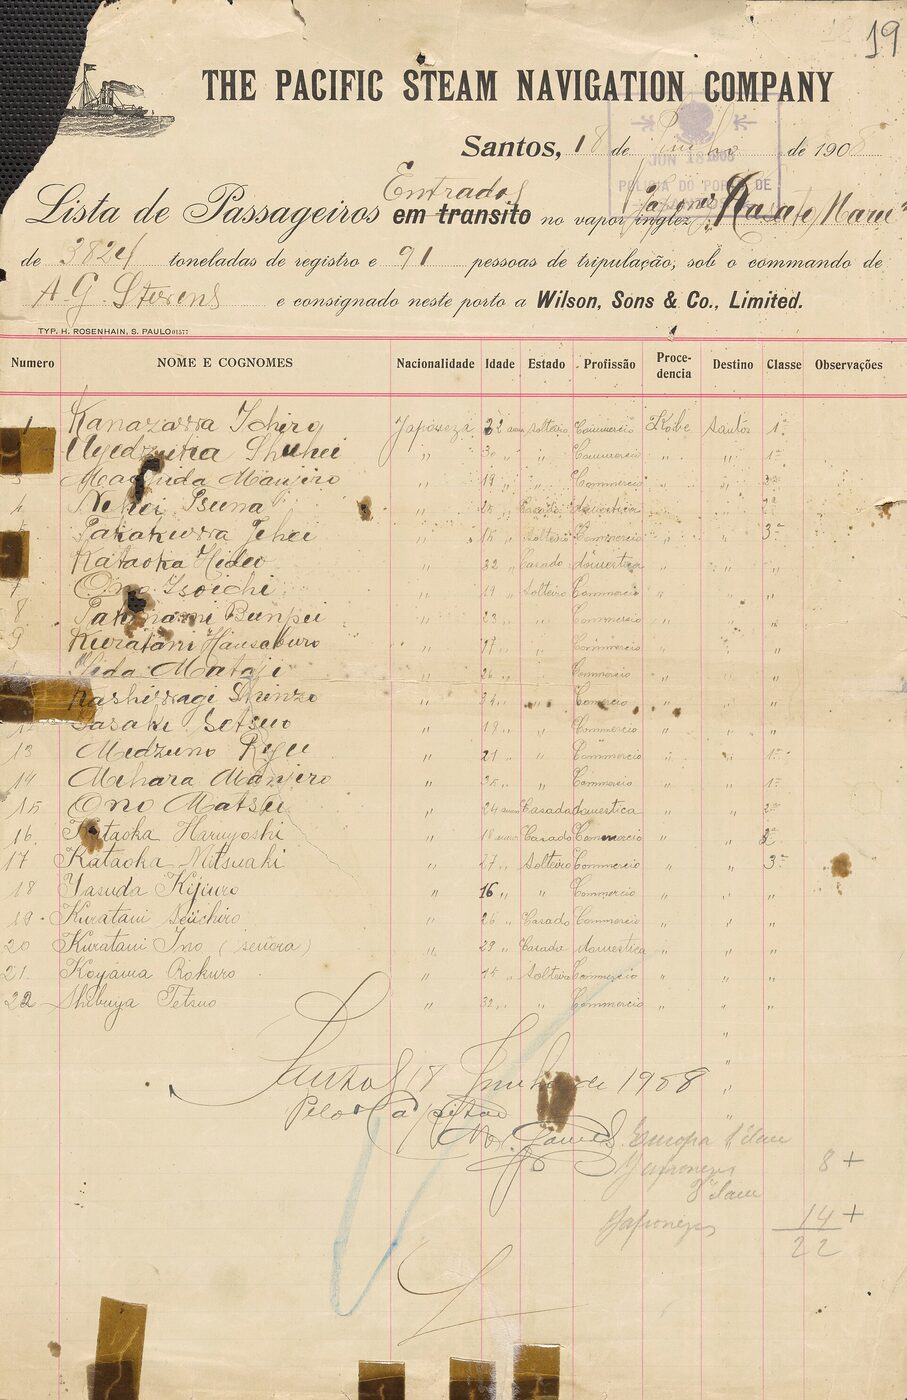 19
THE PACIFIC STEAM NAVIGATION COMPANY
Santos, 18 de Junho de 1908
JUN 18 1908
POLICIA DO PORTO DE
Entrados
Lista de Passageiros em transito no vapor inglez Japonez "Kasato Maru"
de 3824 toneladas de registro e 91 pessoas de tripulação, sob o commando de
A. G. Stevens e consignado neste porto a Wilson, Sons & Co., Limited.
TYP. H. ROSENHAIN, S. PAULO 01577
Numero NOME E COGNOMES Nacionalidade Idade Estado Profissão Proce-dencia Destino Classe Observações
1 Kanazawa Ichiro Japoneza 32 annos solteiro Commercio Kobe Santos 1ª
Uyedzuka Shuhei " 30 " " Commercio " " 1ª
3 Manjiro " 19 " " Commercio " "
4 Nihei Tsuna " casada domestica " "
Takakuwa Jihei " solteiro Commercio " " 3ª
Kataoka Hideo " 22 " Casado domestica " " "
7 Ono Isoichi " 19 " Solteiro Commercio " " "
8 Bunpei " 23 " " Commercio " " "
9 Kuratani Hansaburo " " " Commercio " " "
Mataji " 26 " " Commercio " " "
Kashiwagi Shinzo " 34 " " " " "
12 Sasaki Setsuo " 19 " " Commercio " " "
13 Medzuno Ryu " 21 " " Commercio " " 1ª
14 Mihara Manjero " 35 " " Commercio " " 1ª
15 Ono Matsu " 24 annos Casada domestica " " 2ª
16 Kataoka Haruyoshi " 18 annos Casado Commercio " " 2ª
17 Kataoka Mitsuaki " 27 " Solteiro Commercio " " 3ª
18 Yasuda Kijiuro " 16 " " Commercio " " "
19 Kuratani Seiichiro " 26 " Casado Commercio " " "
20 Kuratani Ino (señora) " 29 " Casada domestica " " "
21. Koyama Rokuro " 15 " Solteiro Commercio " " "
22 Shibuya Tetsuo " 32 " " Commercio " " "
Santos 18 Junho de 1908
Pelo Capitão
Europa 1ª classe
Japonezes 8 +
3ª classe
Japonezes 14 +
22